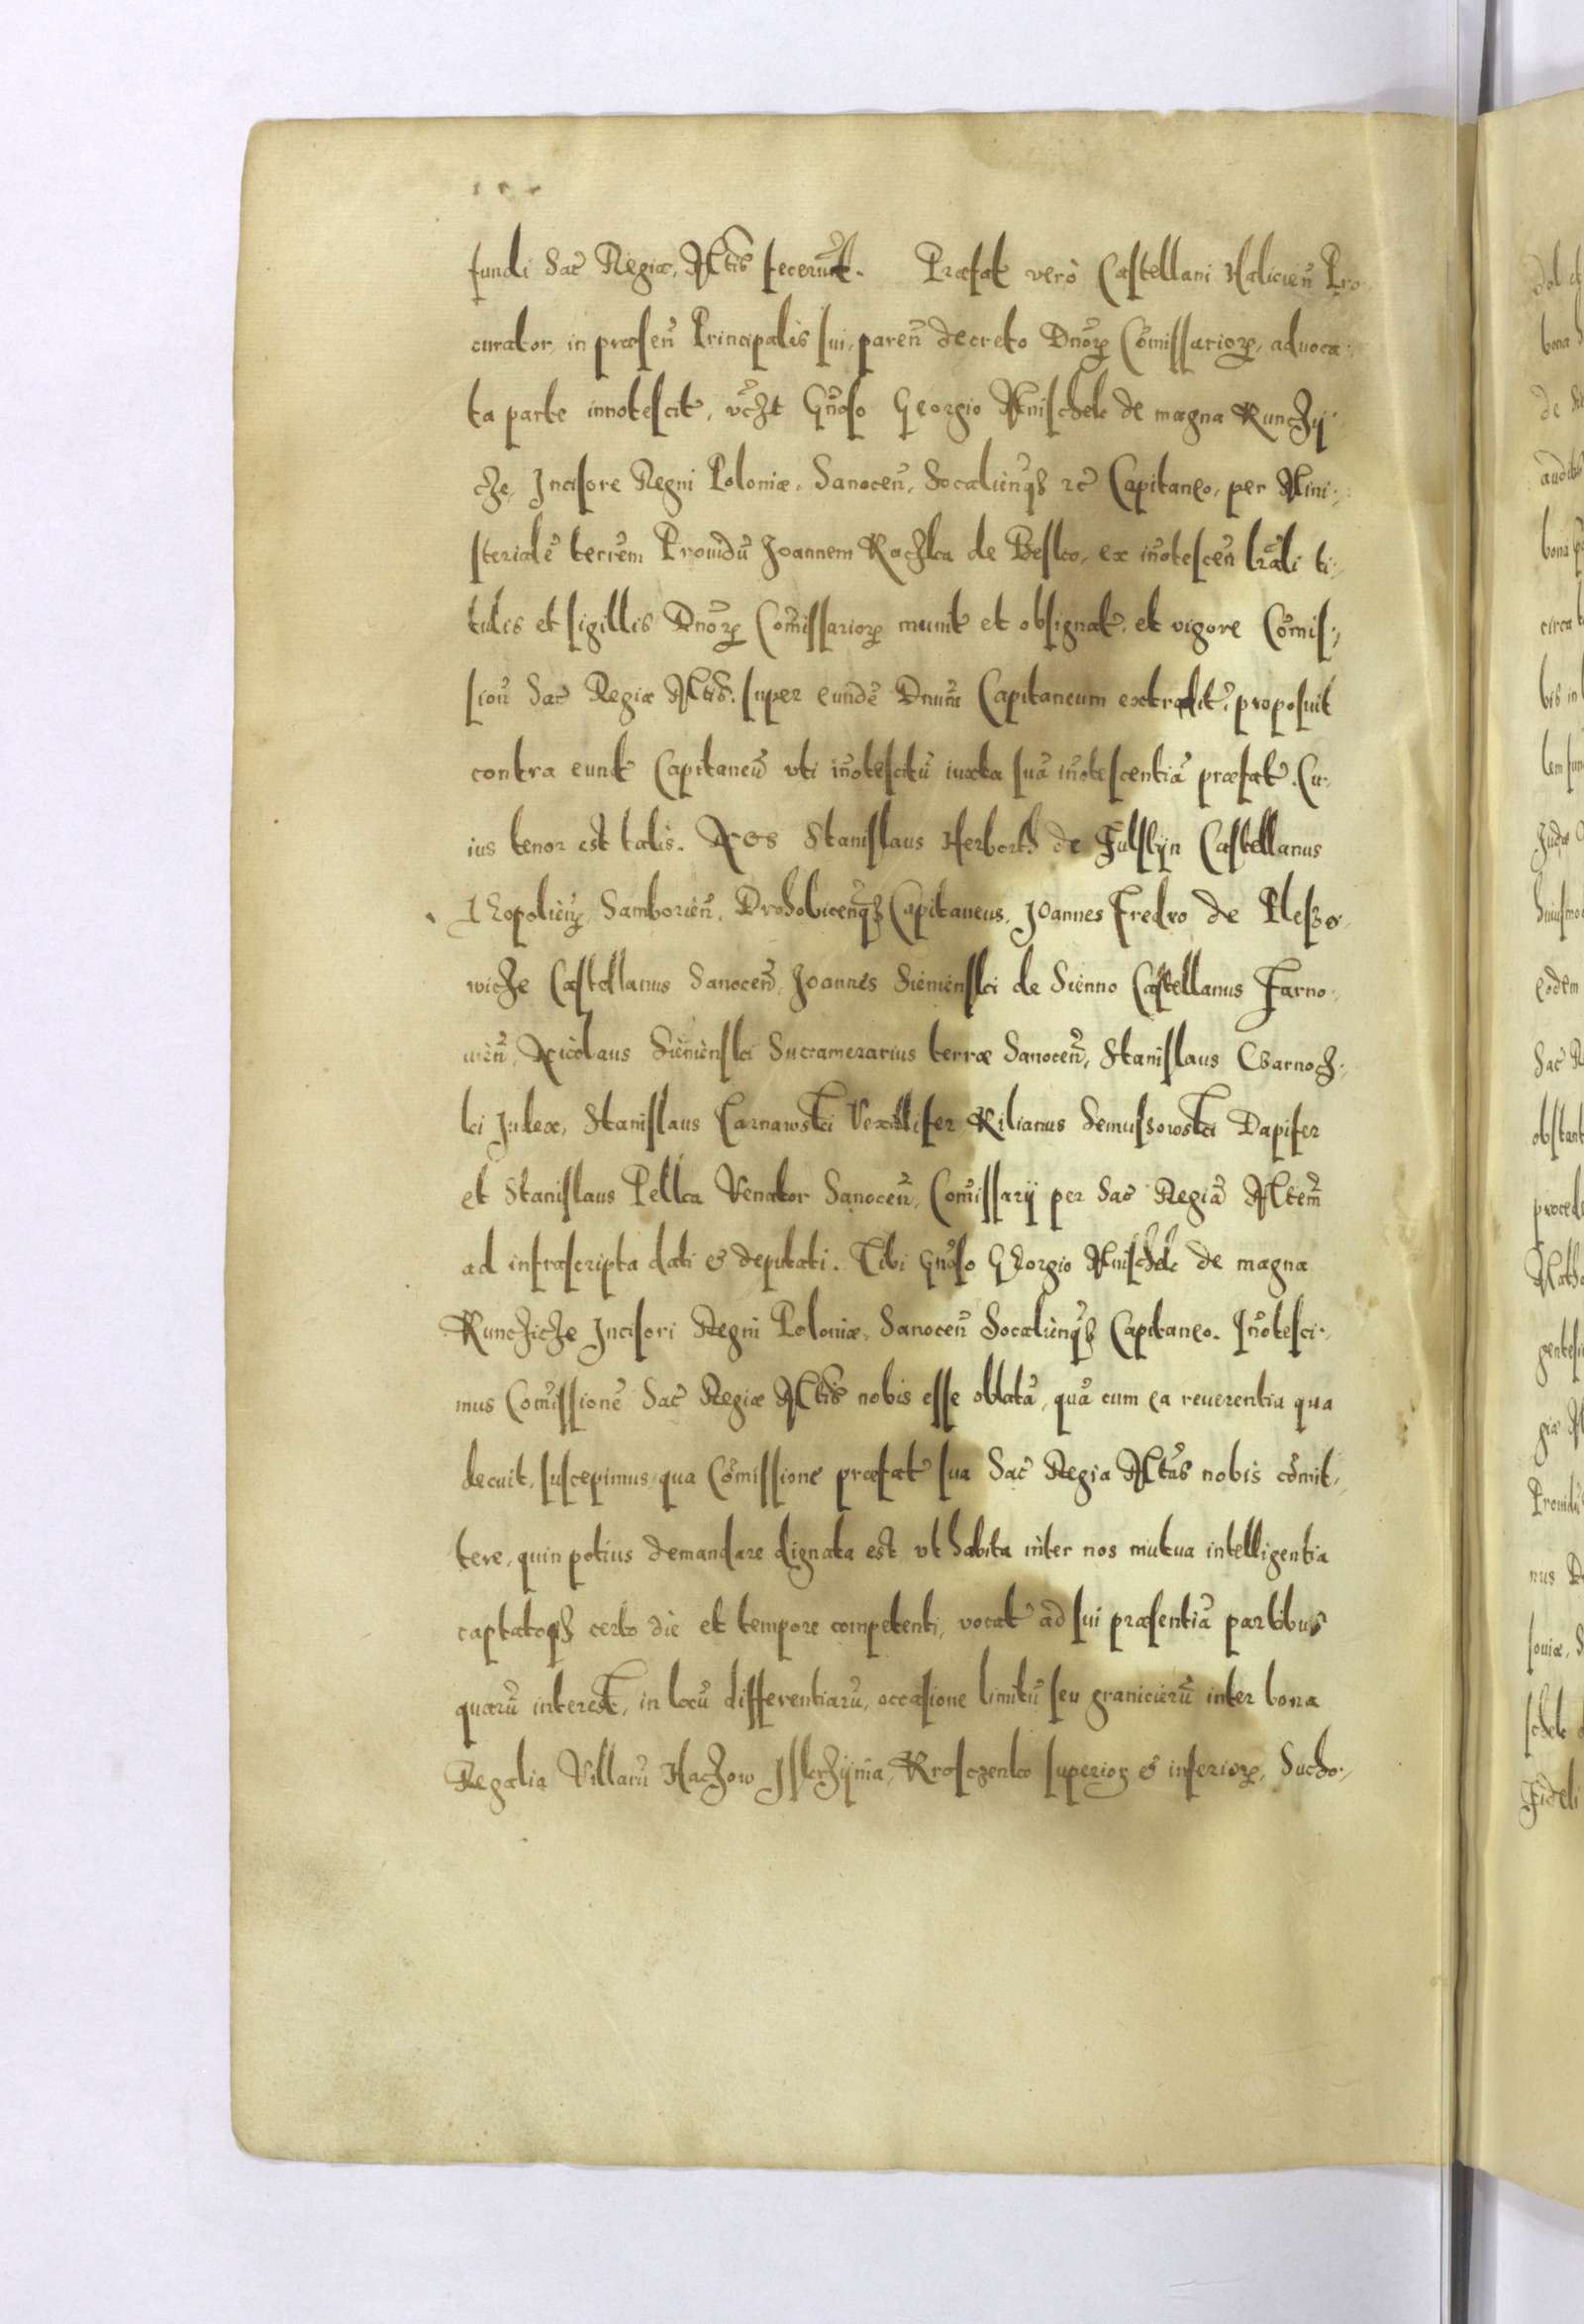 fundi Sac̃ Regiæ Mt̃is fecerũt. Præfat̃ verò Castellani Halicien̄ Pro
curator, in præsen̄ Principalis sui, paren̄ decreto Dnõꝝ Cõmissarioꝝ, aduoca-
ta parte innotescit, vc̃zt Gñoso Georgio Mnischek de magna Kunczy
cze, Incisore Regni Poloniæ, Sanocen̄, Socalien̄qꝫ ꝛc̃ Capitaneo, per Mini-
sterialẽ terrem̃ Prouidũ Joannem Roczka de Besko, ex iñotescen̄ lr̃ali ti-
tulis et sigillis Dnõꝝ Cõmissarioꝝ munit̃ et obsignat̃, et vigore Cõmis-
sion̄ Sac̃ Regiæ Mt̃is. super eundẽ Dnum̃ Capitaneum extradit̃, proposuit
contra eund̃ Capitaneũ vti iñotescitũ iuxta suã iñotescentiã præfat̃. Cu-
ius tenor est talis. Nos Stanislaus Herborth de Fulstyn Castellanus
Leopolien̄, Samborien̄, Drohobicen̄qꝫ Capitaneus, Joannes Fredro de Pleszo-
wicze Castellanus Sanocen̄, Joannes Sienienski de Sienno Castellanus Zarno-
uien̄, Nicolaus Sienienski Succamerarius terræ Sanocen̄, Stanislaus Czarnocz-
ki Judex, Stanislaus Tarnawski Vexillifer, Kilianus Semuszowski Dapifer
et Stanislaus Pełka Venator Sanocen̄, Comĩssarij per Sac̃ Regiã Mtem̃
ad infrascripta dati & deputati. Tibi Gñoso Georgio Mnischek de magna
Kunczicze Incisori Regni Poloniæ, Sanocen̄ Socalien̄qꝫ Capitaneo. Iñotesci-
mus Comĩssionẽ Sac̃ Regiæ Mt̃is nobis esse oblatã, quã cum ea reuerentia qua
decuit, suscepimus, qua Cõmissione præfat̃ sua Sac̃ Regia Mt̃as nobis cõmit-
tere, quin potius demandare dignata est, vt habita inter nos mutua intelligentia
captatoqꝫ certo die et tempore competenti, vocat̃ ad sui præsentiã partibus
quarũ interest, in locũ differentiarũ, occasione limitũ seu granicierũ inter bona
Regalia Villarũ Haczow Iskrzynia, Krosczenko superioꝝ & inferioꝝ, Sucho-